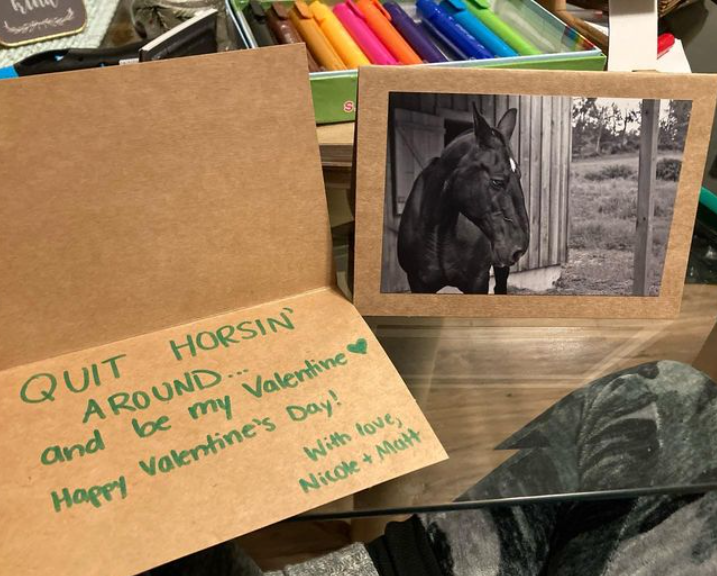 kind
S
QUIT HORSIN'
AROUND...
and be my Valentine ♥
Happy Valentine's Day!
With love,
Nicole + Matt